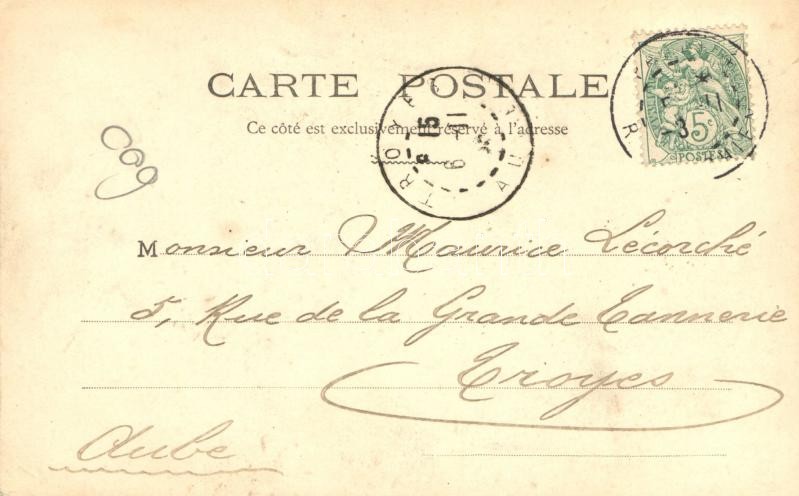 CARTE POSTALE
Ce côté est exclusivement réservé à l'adresse
TROYES
AUBE
15
5c
POSTES
069
Monsieur Maurice Lécorché
5, Rue de la Grande Tannerie
Troyes
Aube